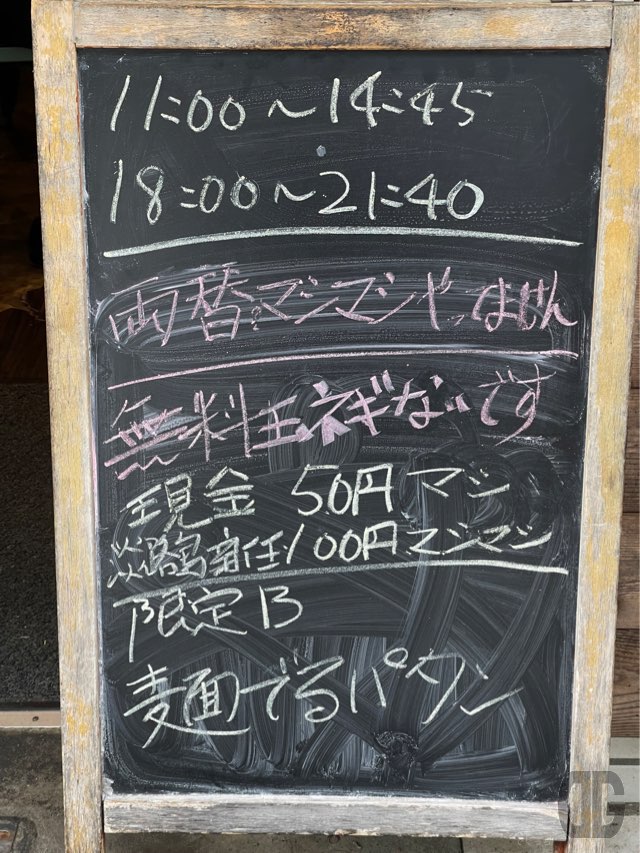 11:00～14:45
18:00～21:40
両替、マシマシやってません
無料玉ネギないです
現金 50円 マシ
淡路新任100円マシマシ
限定B
麦面でるパタン